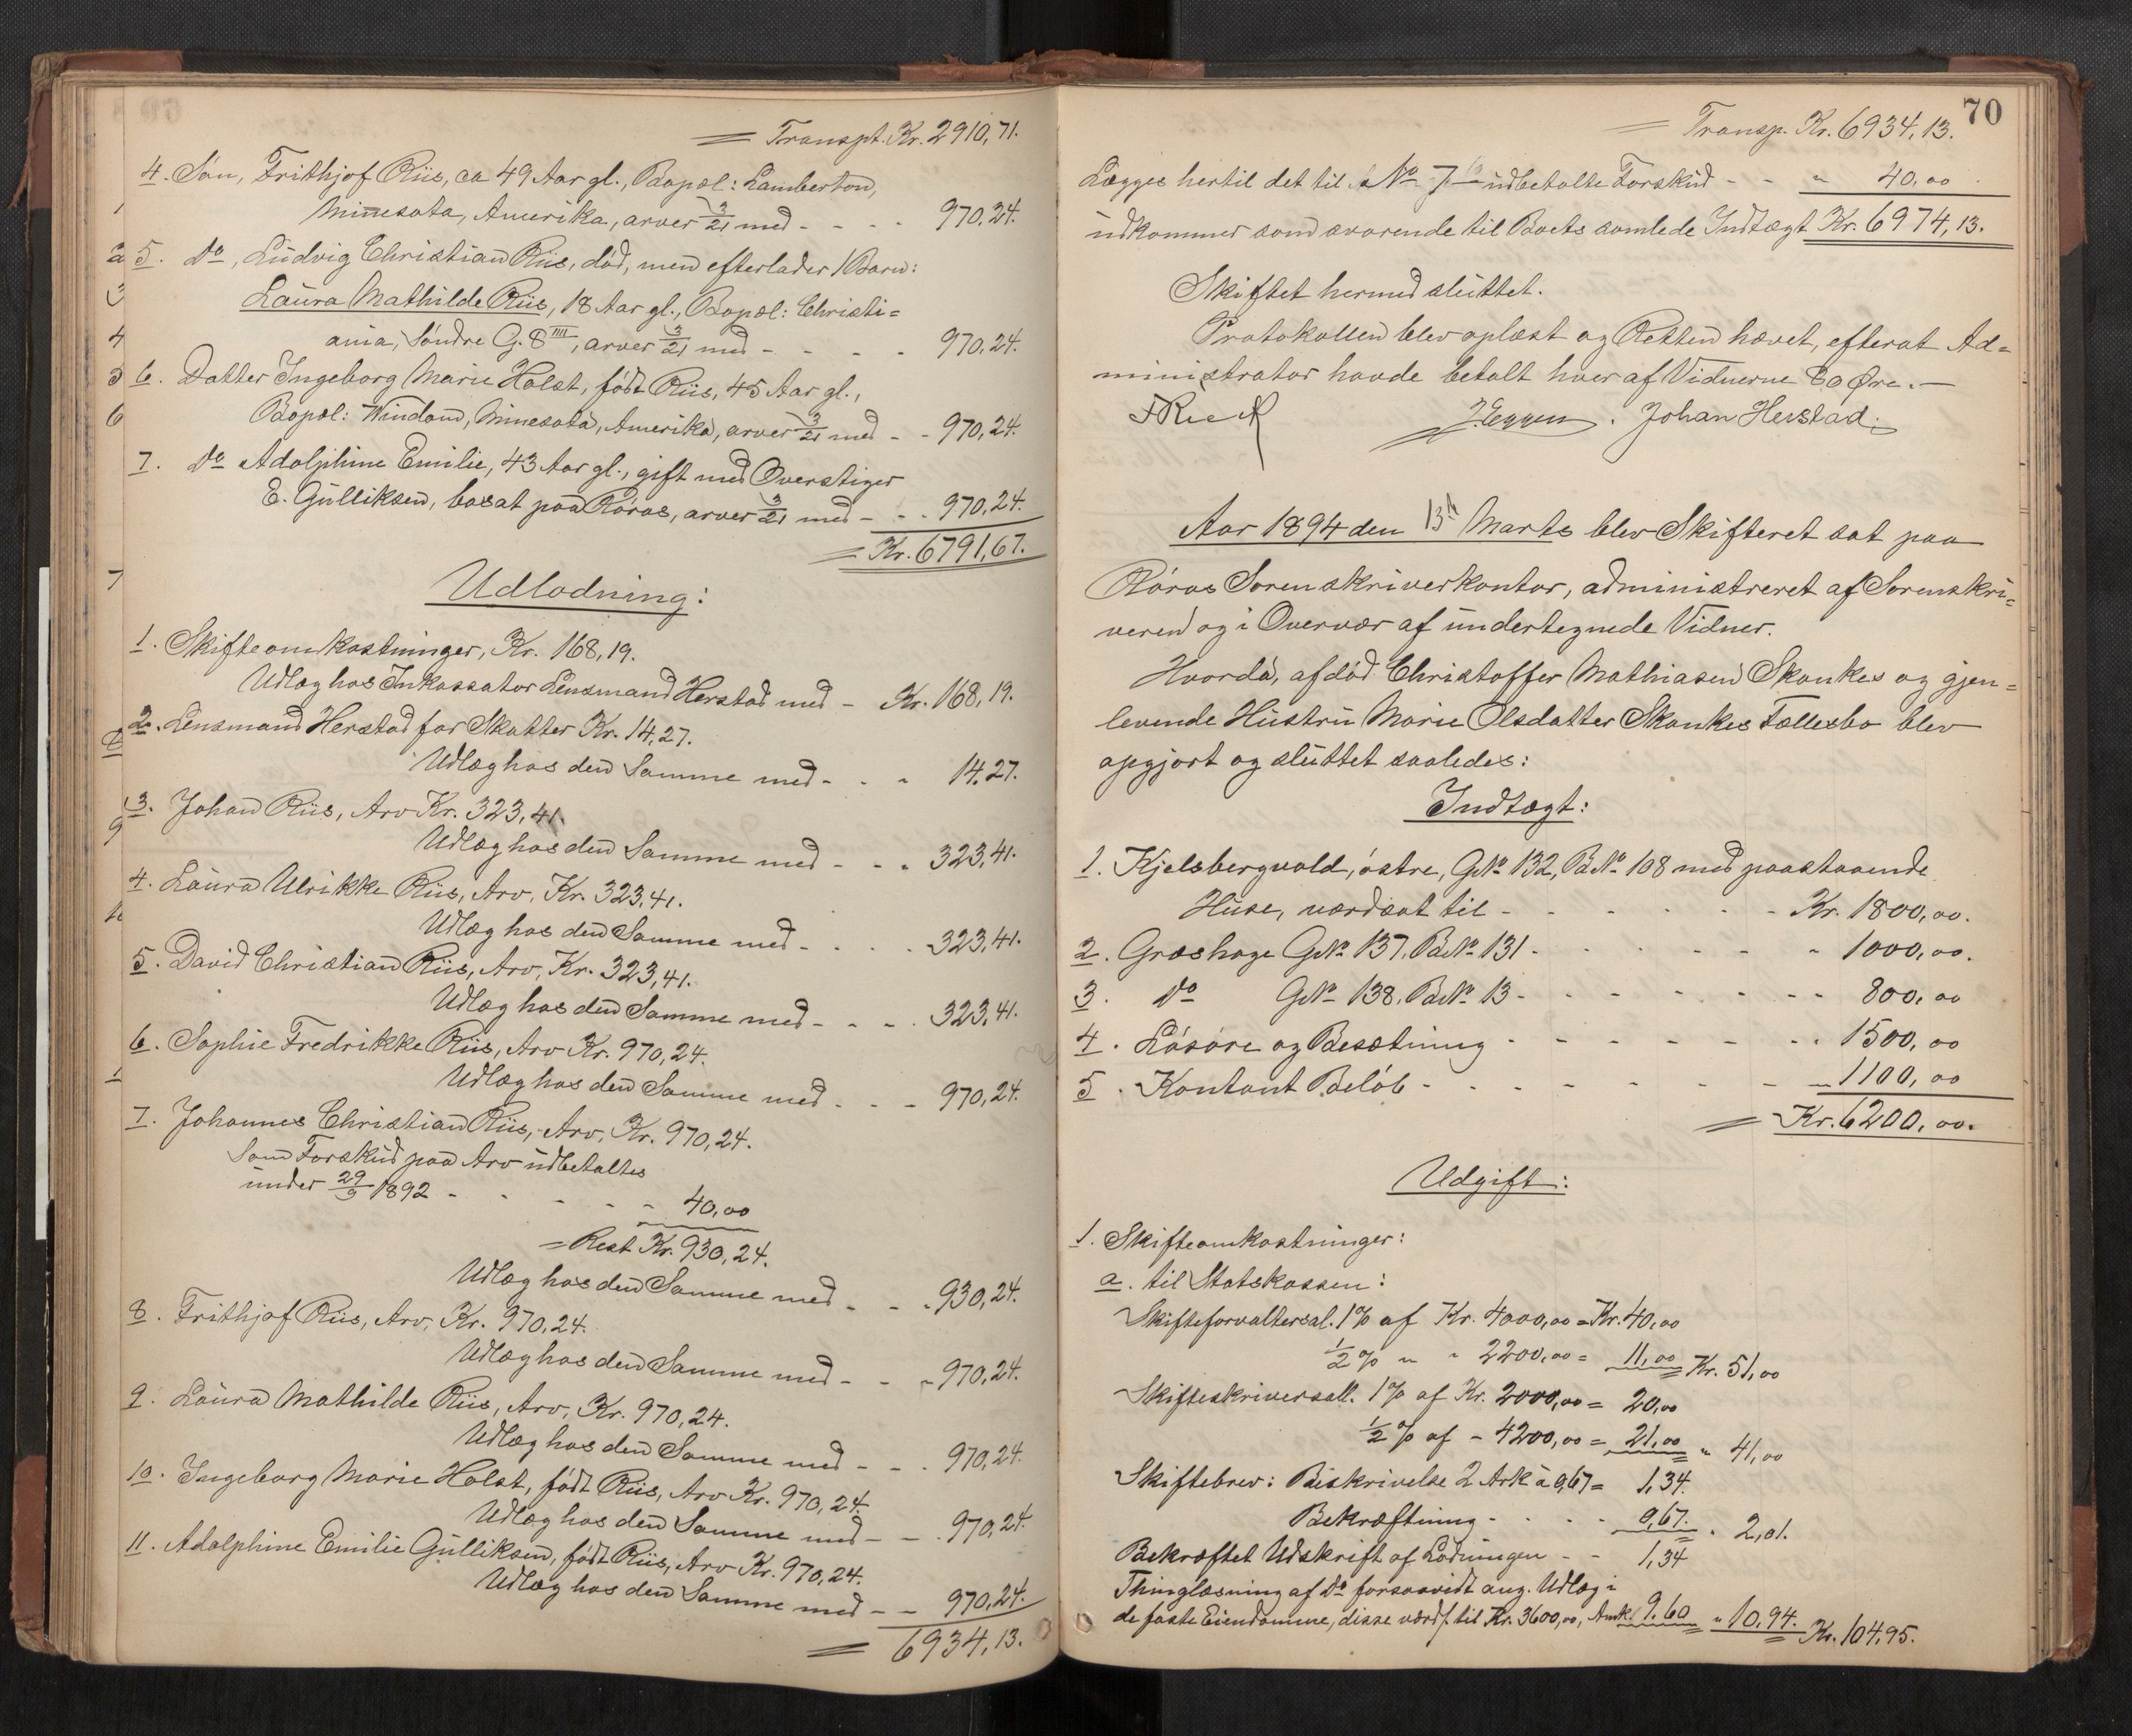 = Transpt. Kr. 2910,71.
4. Søn, Frithjof Riis, ca 49 Aar gl., Bopæl: Lamberton,
Minnesota, Amerika, arver 3/21 med - - - - 970,24.
5. do, Ludvig Christian Riis, død, men efterlader 1 Barn:
Laura Mathilde Riis, 18 Aar gl., Bopæl: Christi=
ania, Søndre G. 8 IIII, arver 3/21 med - - - - 970,24.
6. Datter Ingeborg Marie Holst, født Riis, 45 Aar gl.,
Bopæl: Windom, Minesota, Amerika, arver 3/21 med - - 970,24.
7. do Adolphine Emilie, 43 Aar gl., gift med Overstiger
E. Gulliksen, bosat paa Røros, arver 3/21 med - - - 970,24.
= Kr. 6791,67.
Udlodning:
1. Skifteomkostninger, Kr. 168,19.
Udlæg hos Inkassator Lensmand Herstad med - Kr. 168,19.
2. Lensmand Herstad for Skatter Kr. 14,27.
Udlæg hos den Samme med - - - 14,27.
3. Johan Riis, Arv Kr. 323,41.
Udlæg hos den Samme med - - - 323,41.
4. Laura Ulrikke Riis, Arv, Kr. 323,41.
Udlæg hos den Samme med - - - - 323,41.
5. David Christian Riis, Arv, Kr. 323,41.
Udlæg hos den Samme med - - - - 323,41.
6. Sophie Fredrikke Riis, Arv Kr. 970,24.
Udlæg hos den Samme med - - - 970,24.
7. Johannes Christian Riis, Arv, Kr. 970,24.
Som Forskud paa Arv udbetaltes
under 29/9 1892 - - - - - 40,00
= Rest Kr. 930,24.
Udlæg hos den Samme med - - - 930,24.
8. Frithjof Riis, Arv, Kr. 970,24.
Udlæg hos den Samme med - - - 970,24.
9. Laura Mathilde Riis, Arv, Kr. 970,24.
Udlæg hos den Samme med - - - 970,24.
10. Ingeborg Marie Holst, født Riis, Arv Kr. 970,24.
Udlæg hos den Samme med - - - 970,24.
11. Adolphine Emilie Gulliksen, født Riis, Arv Kr. 970,24.
Udlæg hos den Samme med - - 970,24.
= 6934,13.
70
= Transp. Kr. 6934,13.
Lægges hertil det til No 7 udbetalte Forskud - - " 40,00.
udkommer som svarende til Boets samlede Indtægt Kr. 6974,13.
Skiftet hermed sluttet.
Protokollen blev oplæst og Retten hævet, efterat Ad=
ministrator havde betalt hver af Vidnerne 80 Øre. -
J. Eggen. Johan Herstad.
Aar 1894 den 13de Marts blev Skifteret sat paa
Røros Sorenskriverkontor, administreret af Sorenskri=
veren og i Overvær af undertegnede Vidner.
Hvorda, afdød Christoffer Mathiasen Skankes og gjen=
levende Hustru Marie Olsdatter Skankes Fællesbo blev
opgjort og sluttet saaledes:
Indtægt:
1. Kjelsbergvold, østre, GNo 132, BNo 108 med paastaaende
Huse, værdsat til - - - - - - Kr. 1800,00.
2. Græshage GNo 137, BNo 131 - - - - - " 1000,00.
3. do GNo 138, BNo 13 - - - - - - " 800,00
4. Løsøre og Besætning - - - - - - " 1500,00
5. Kontant Beløb - - - - - - - " 1100,00
= Kr. 6200,00.
Udgift:
1. Skifteomkostninger:
a. til Statskassen:
Skifteforvaltersal. 1% af Kr. 4000,00 = Kr. 40,00
1/2 % " " 2200,00 = 11,00 Kr. 51,00
Skifteskriversall. 1% af Kr. 2000,00 = 20,00
1/2 % af - 4200,00 = 21,00 " 41,00
Skiftebrev: Beskrivelse 2 Ark à 0,67 = 1,34.
Bekræftning - - - - 0,67. " 2,01.
Bekræftet Udskrift af Lodningen - - 1,34
Thinglæsning af do forsaavidt ang. Udlæg i
de faste Eiendomme, disse værds. til Kr. 3600,00, Amk. 9.60 " 10,94. Kr. 104,95.